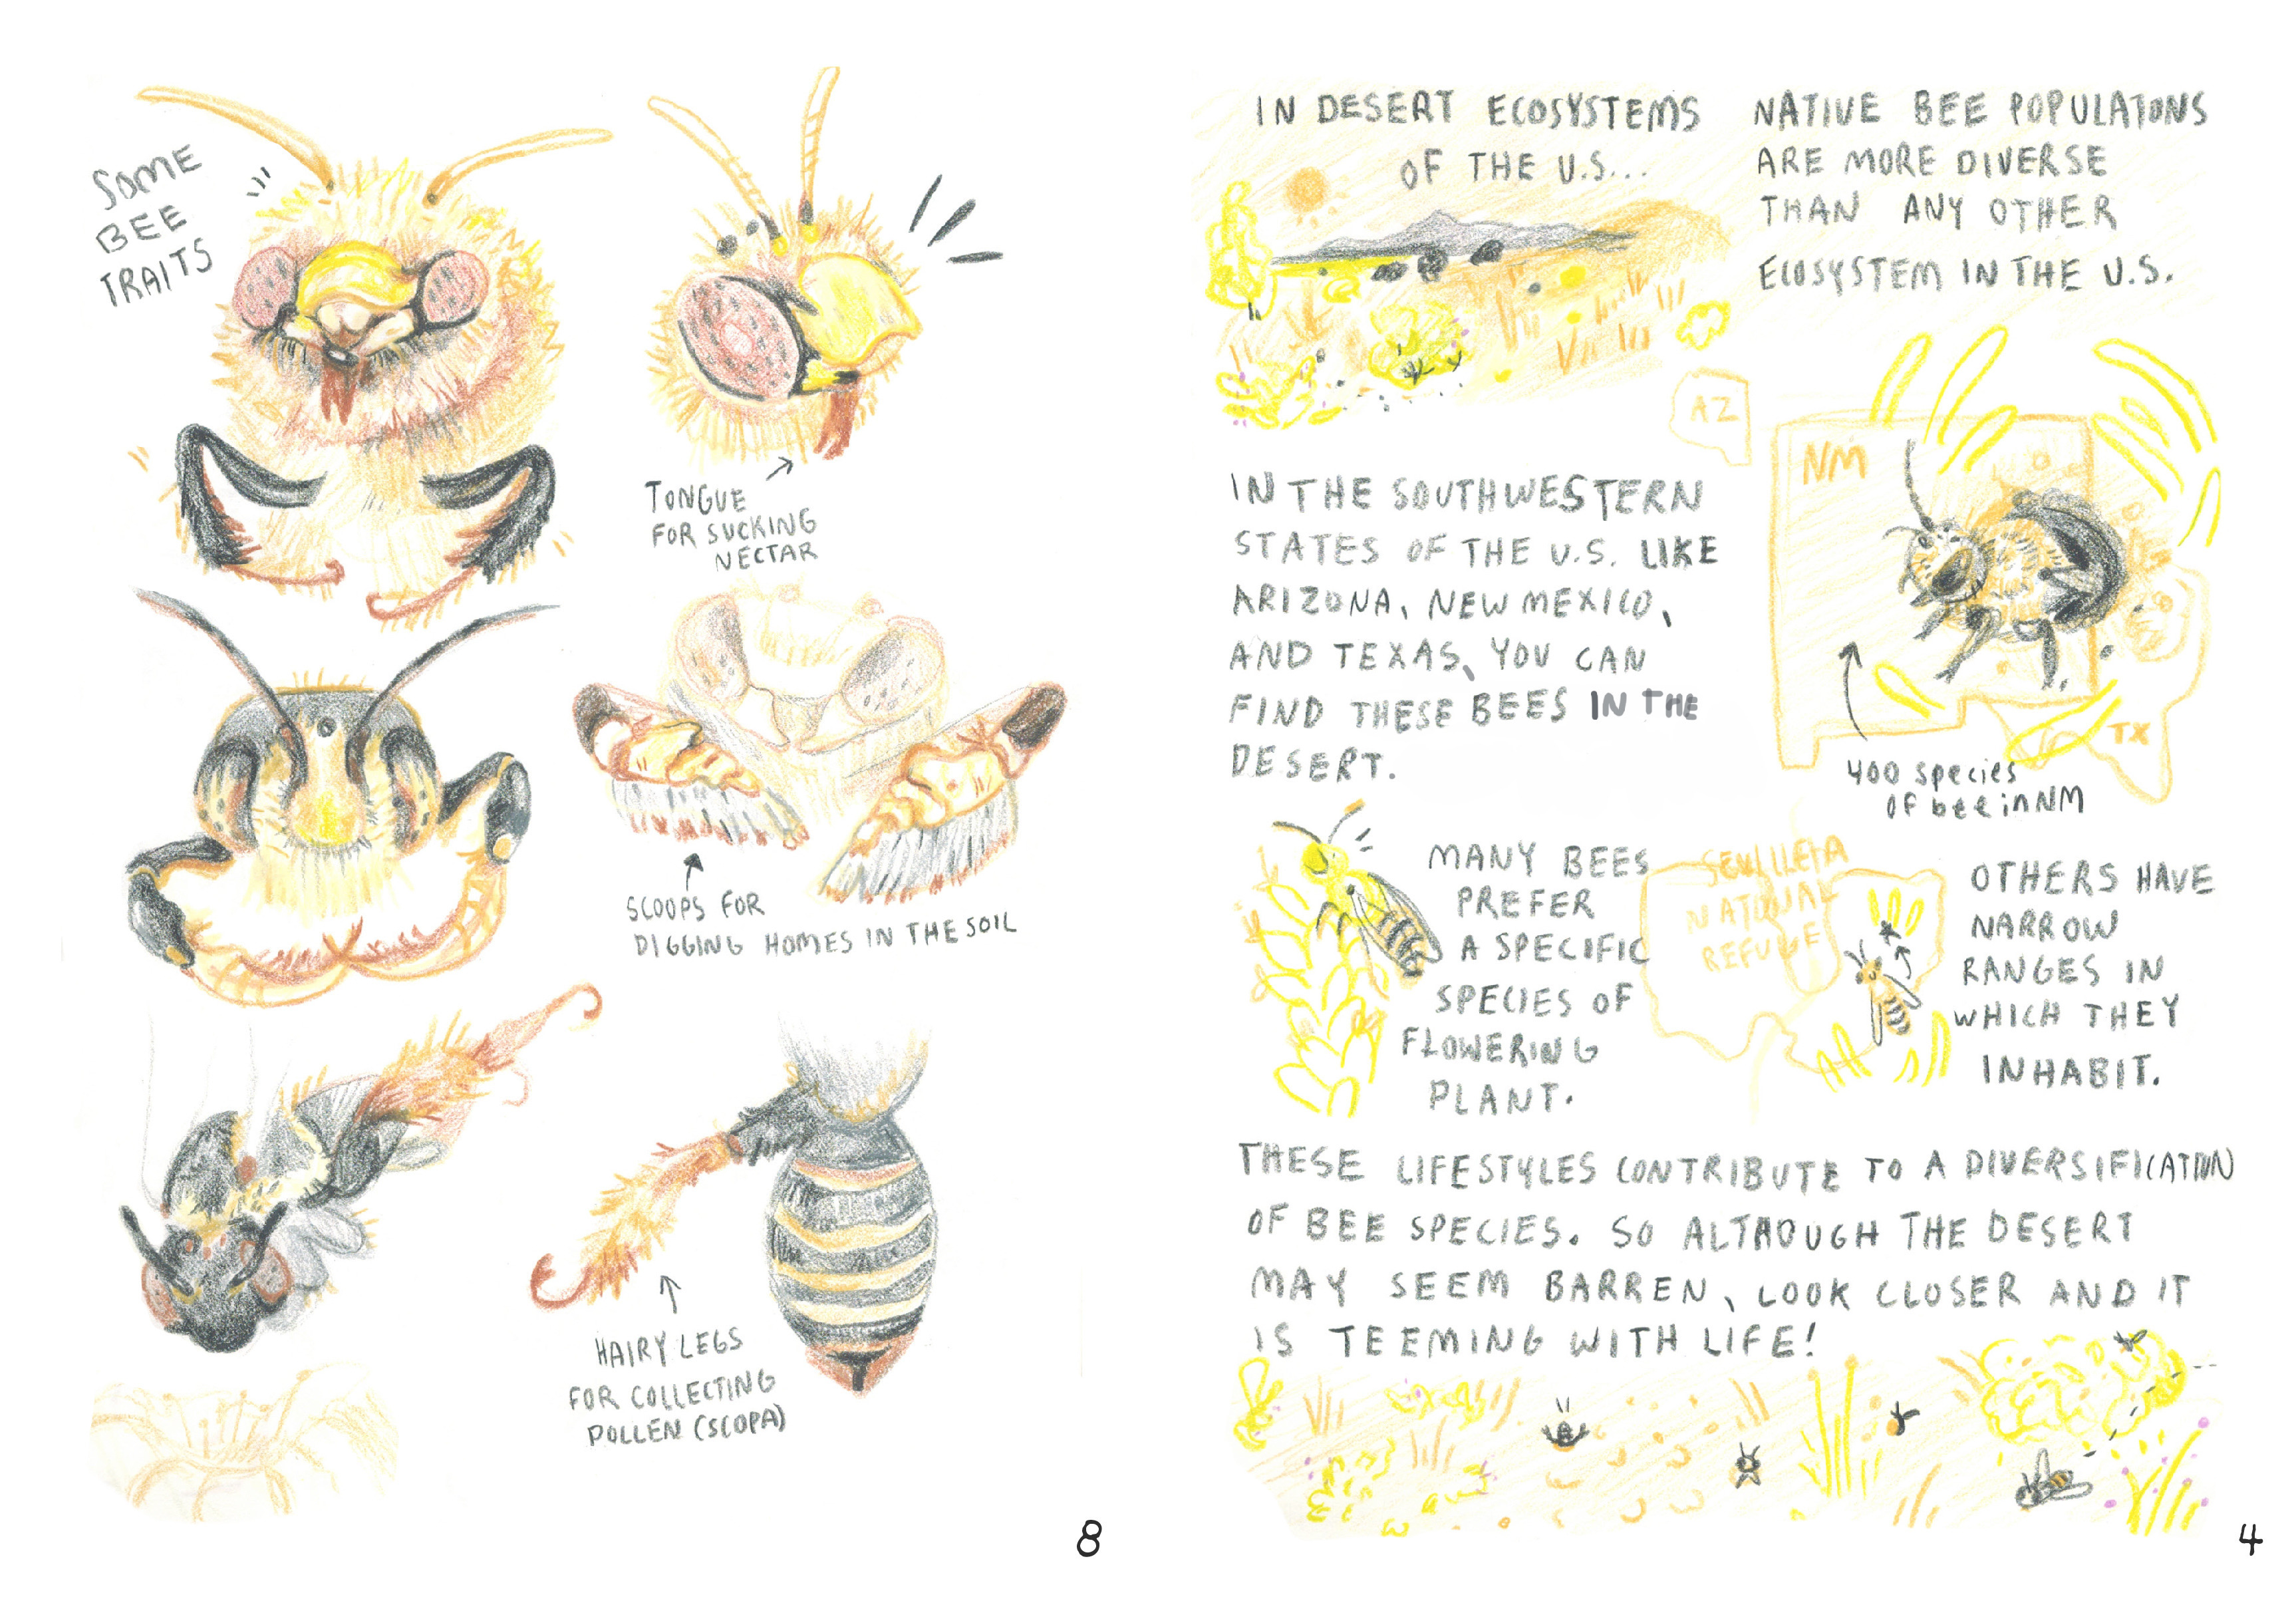 SOME
BEE
TRAITS
TONGUE
FOR SUCKING
NECTAR
SCOOPS FOR
DIGGING HOMES IN THE SOIL
HAIRY LEGS
FOR COLLECTING
POLLEN (SCOPA)
8
IN DESERT ECOSYSTEMS
OF THE U.S...
NATIVE BEE POPULATONS
ARE MORE DIVERSE
THAN ANY OTHER
ECOSYSTEM IN THE U.S.
AZ
NM
TX
400 species
OF bee in NM
IN THE SOUTHWESTERN
STATES OF THE U.S. LIKE
ARIZONA, NEW MEXICO,
AND TEXAS, YOU CAN
FIND THESE BEES IN THE
DESERT.
MANY BEES
PREFER
A SPECIFIC
SPECIES OF
FLOWERING
PLANT.
SEVILLETA
NATIONAL
REFUGE
OTHERS HAVE
NARROW
RANGES IN
WHICH THEY
INHABIT.
THESE LIFESTYLES CONTRIBUTE TO A DIVERSIFICATION
OF BEE SPECIES. SO ALTHOUGH THE DESERT
MAY SEEM BARREN, LOOK CLOSER AND IT
IS TEEMING WITH LIFE!
4